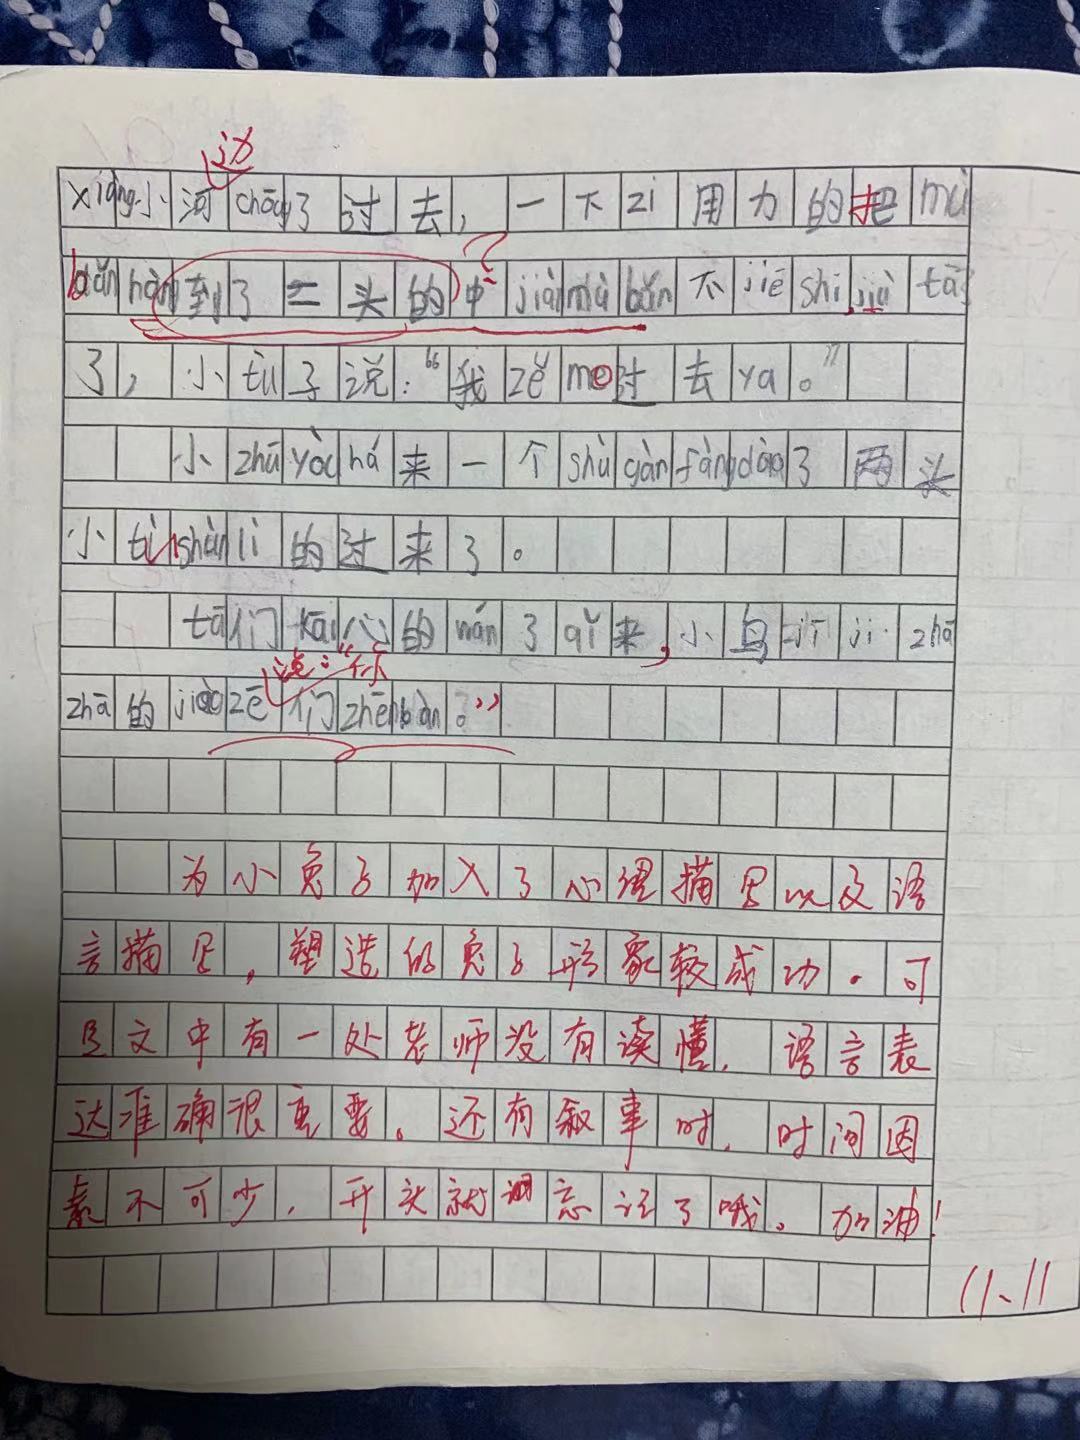 边
xiàng小河chōng了过去，一下zi用力的把mù
bǎn 到了二头的中jiàn mù bǎn不jiē shi, jiù tā
？
了，小tù子说：“我zěme过去ya。”
小zhū yòu 来一个shù gàn fàng dào了两头
小tù shùn lì的过来了。
tā们kāi心的wán了qǐ来，小鸟jī ji zhā
说：“你
zhā的jiào zē们zhēn bàn。”
为小兔子加入了心理描写以及语
言描写，塑造的兔子形象较成功。可
是文中有一处老师没有读懂，语言表
达准确很重要。还有叙事时，时间因
素不可少，开头就忘记了哦。加油！
11、11